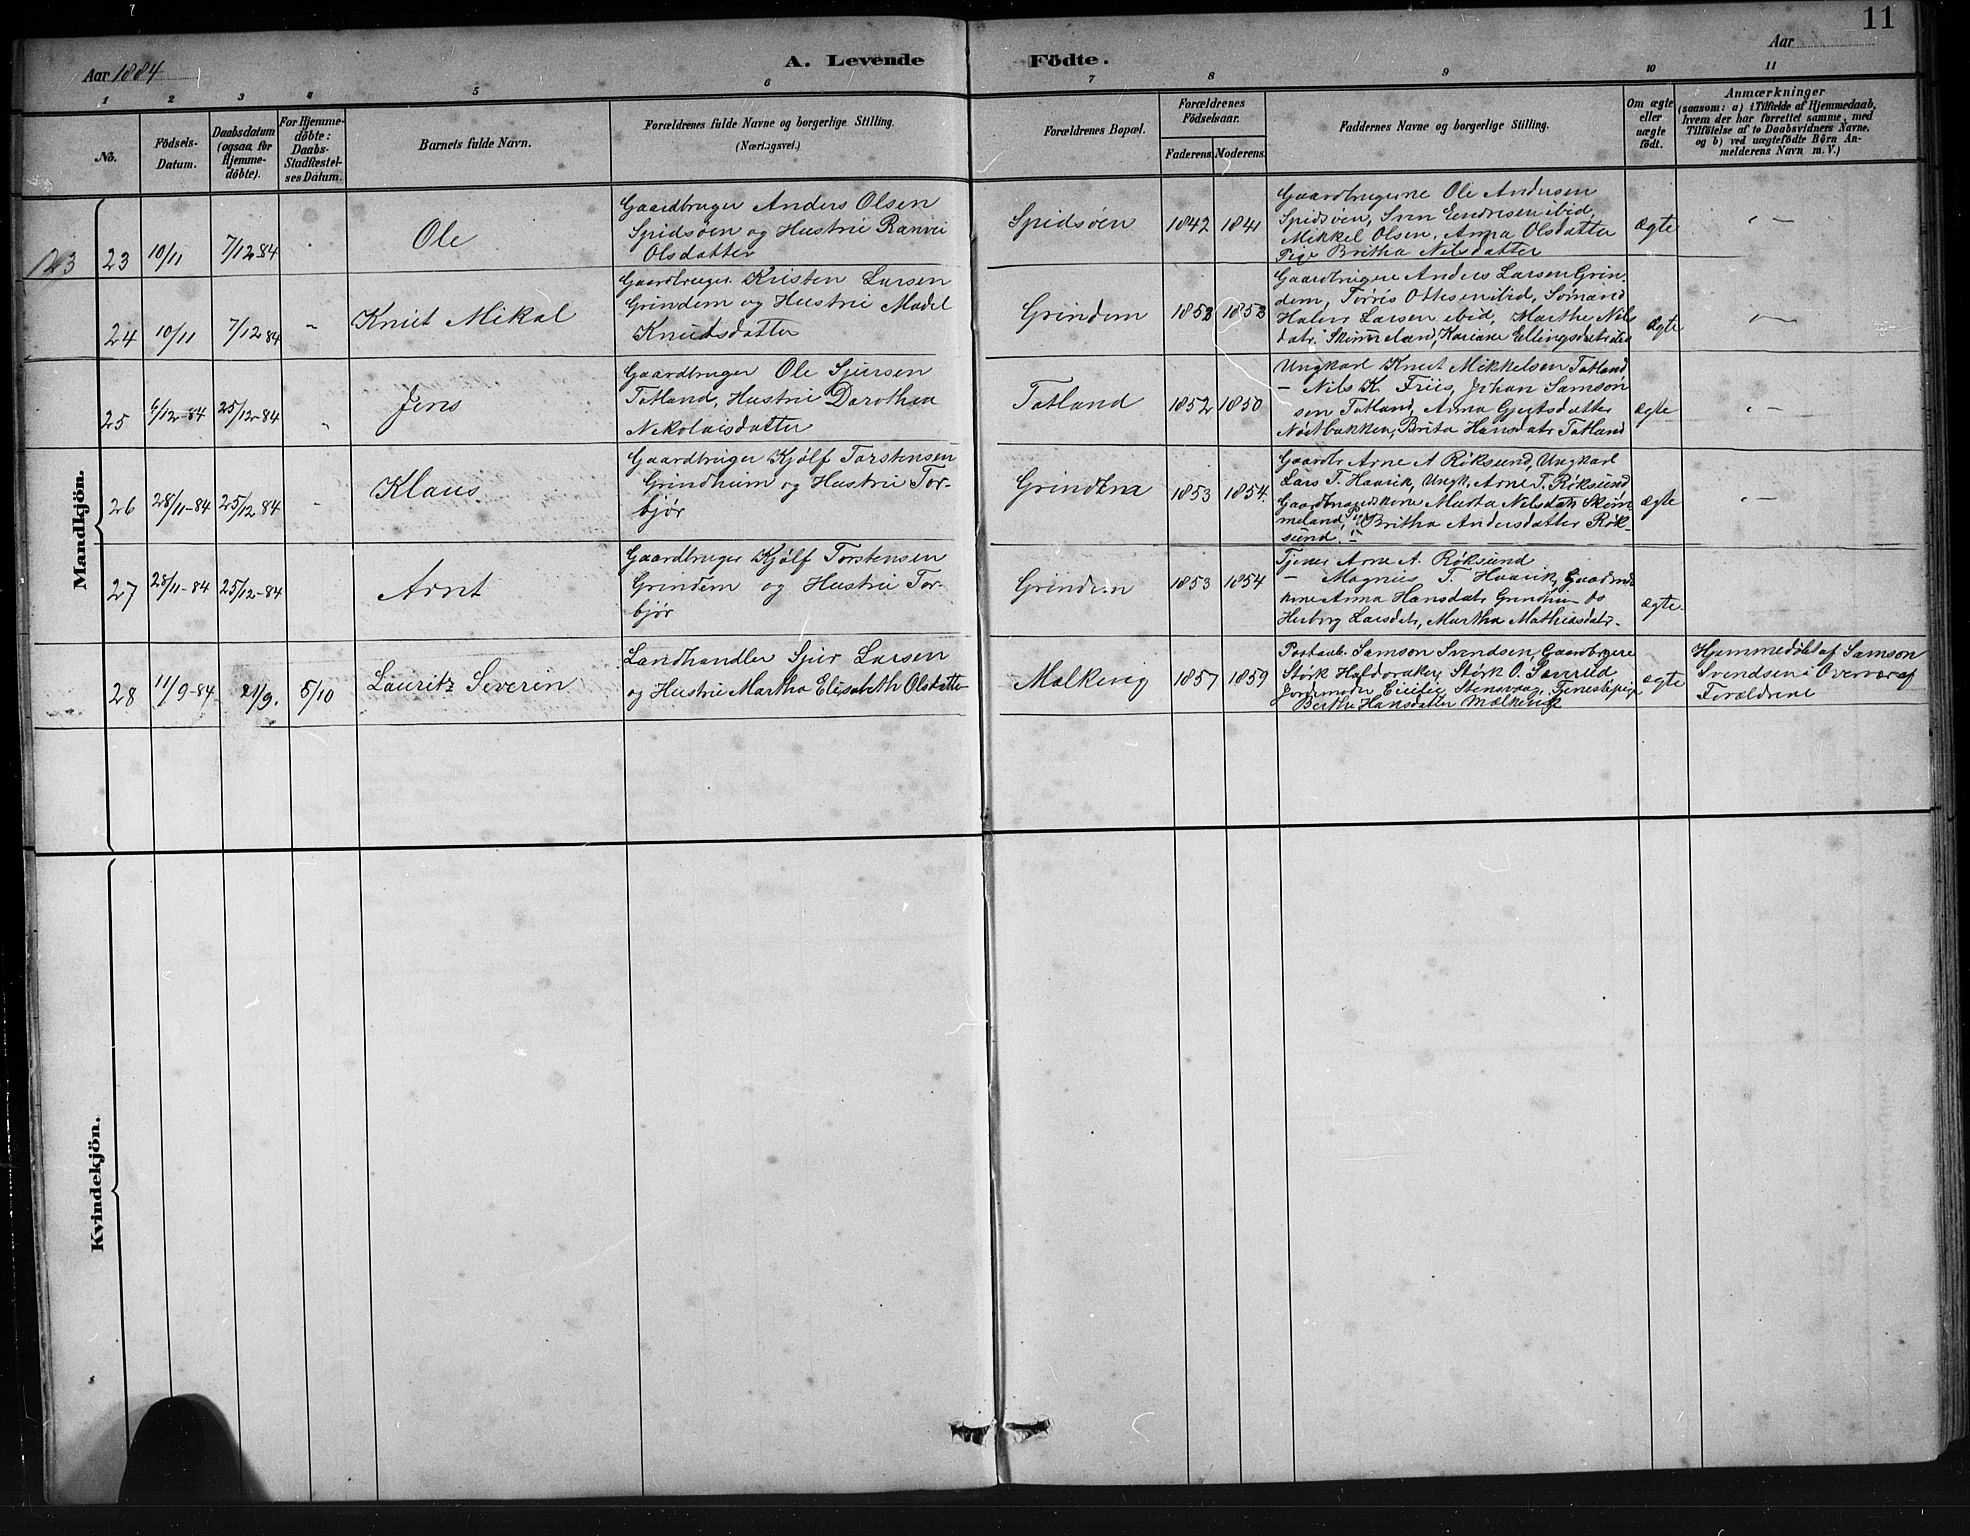 11
Aar 1884
A. Levende Födte.
Aar
1 2 3 4 5 6 7 8 9 10 11
No.
Födsels-
Datum.
Daabsdatum
(ogsaa for
Hjemme-
döbte).
For Hjemme-
döbte:
Daabs-
Stadfæstel-
ses Datum.
Barnets fulde Navn.
Forældrenes fulde Navne og borgerlige Stilling.
(Næringsvei.)
Forældrenes Bopæl.
Forældrenes
Födselsaar.
Faderens. Moderens.
Faddernes Navne og borgerlige Stilling.
Om ægte
eller
uægte
födt.
Anmærkninger
(saasom: a) i Tilfælde af Hjemmedaab,
hvem der har forrettet samme, med
Tilföielse af to Daabsvidners Navne,
og b) ved uægtefödte Börn An-
melderens Navn m. V.)
Mandkjön.
123
23 10/11 7/12 84
Ole
Gaardbruger Anders Olsen
Spidsöen og Hustrie Ranvei
Olsdatter
Spidsöen
1842 1841
Gaardbrugerne Ole Andersen
Spidsöen, Sven Eendresen ibid,
Mikkel Olsen, Anna Olsdatter
Pige Britha Nilsdatter
ægte
24 10/11 7/12 84
Knut Mikal
Gaardbruger Kristen Larsen
Grindem og Hustrie Madel
Knudsdatter
Grindem
1853 1853
Gaardbrugere Anders Larsen Grin-
dem, Torris Ottesen ibid, Sömand
Larsen ibid, Marthe Nils
datr. Skimmeland, Kariane Ellingsdatr
ægte
25 6/12-84 25/12-84
Jens
Gaardbruger Ole Sjursen
Tatland, Hustrie Dorothea
Nikolaisdatter
Tatland
1852 1850
Ungkarl Knut Mikkelsen Tatland
— Nils K. Friis, Johan Samson
sen Tatland, Anna Gjertsdatter
Nöstbakken, Brita Hansdatr Tatland
ægte
26 28/11-84 25/12 84
Klaus
Gaardbruger Kjölf Torstensen
Grindheim og Hustrie Tor-
björ
Grindem
1853 1854
Gaardbr Arne A Röksund, Ungkarl
Lars T. Haavik, Ungk. Arne T. Röksund
Gaardmandskone Marta Nilsdatr Skim
meland, Britha Andersdatter Rök-
sund.
ægte
27 28/11-84 25/12-84
Arnt
Gaardbruger Kjölf Torstensen
Grindem og Hustrie Tor-
björ
Grindem
1853 1854
Tjener Arne A. Röksund
— Magnus T. Haavik, Gaardmds
kone Anna Hansdatr Grindheim do
Herborg Larsdatr, Martha Mathiasdatr.
ægte.
28 11/9-84 21/9. 5/10
Lauritz Severin
Landhandler Sjur Larsen
og Hustrie Martha Elisabeth Olsdatter
Malkevig
1857 1859
Postaab. Samson Svendsen, Gaardbrugere
Störk Störk O.
Jordemoder Cicilie Stensvaag, Tjenestepige
Berthe Hansdatter Mælkevig
ægte
Hjemmedöbt af Samson
Svendsen i Overvær af
Forældrene
Kvindekjön.